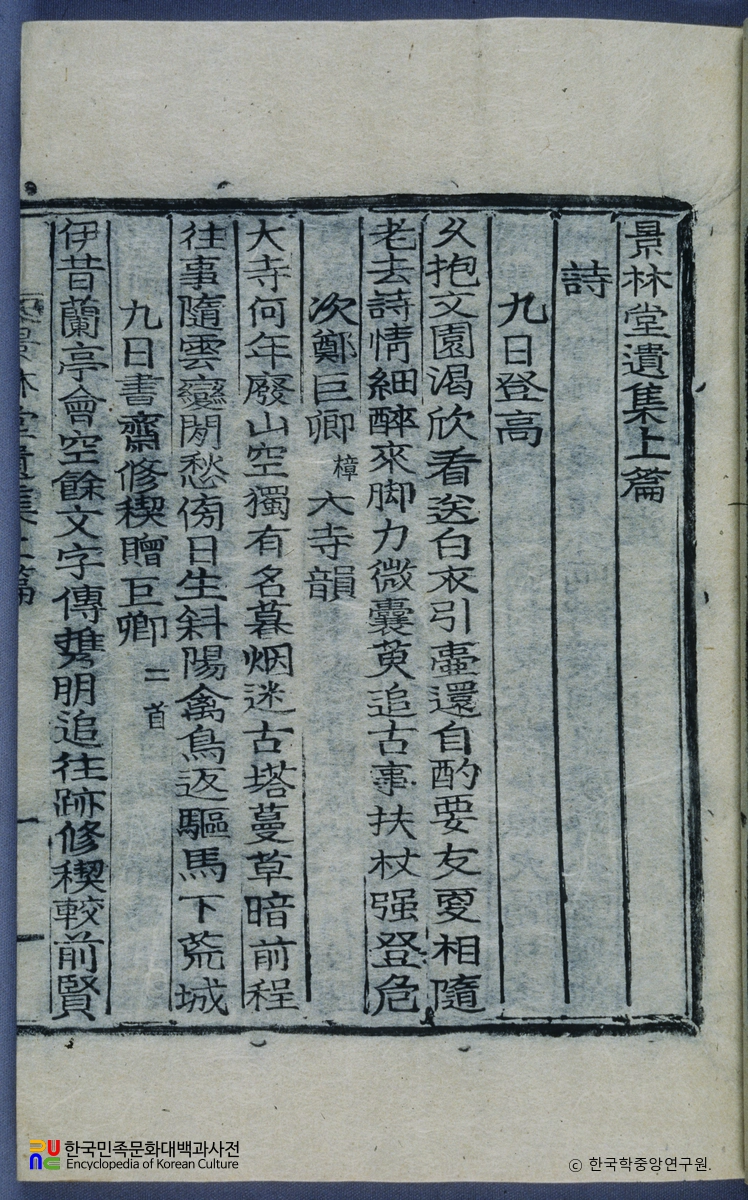 景林堂遺集上篇
詩
九日登高
久抱文園渴欣看送白衣引壺還自酌要友更相隨
老去詩情細醉來脚力微囊萸追古事扶杖强登危
次鄭巨卿 樟 大寺韻
大寺何年廢山空獨有名暮烟迷古塔蔓草暗前程
往事隨雲變閒愁傍日生斜陽禽鳥返驅馬下荒城
九日書齋修稧贈巨卿 二首
伊昔蘭亭會空餘文字傳携朋追往跡修稧較前賢
景林堂遺集上篇 一
한국민족문화대백과사전
Encyclopedia of Korean Culture
ⓒ 한국학중앙연구원.